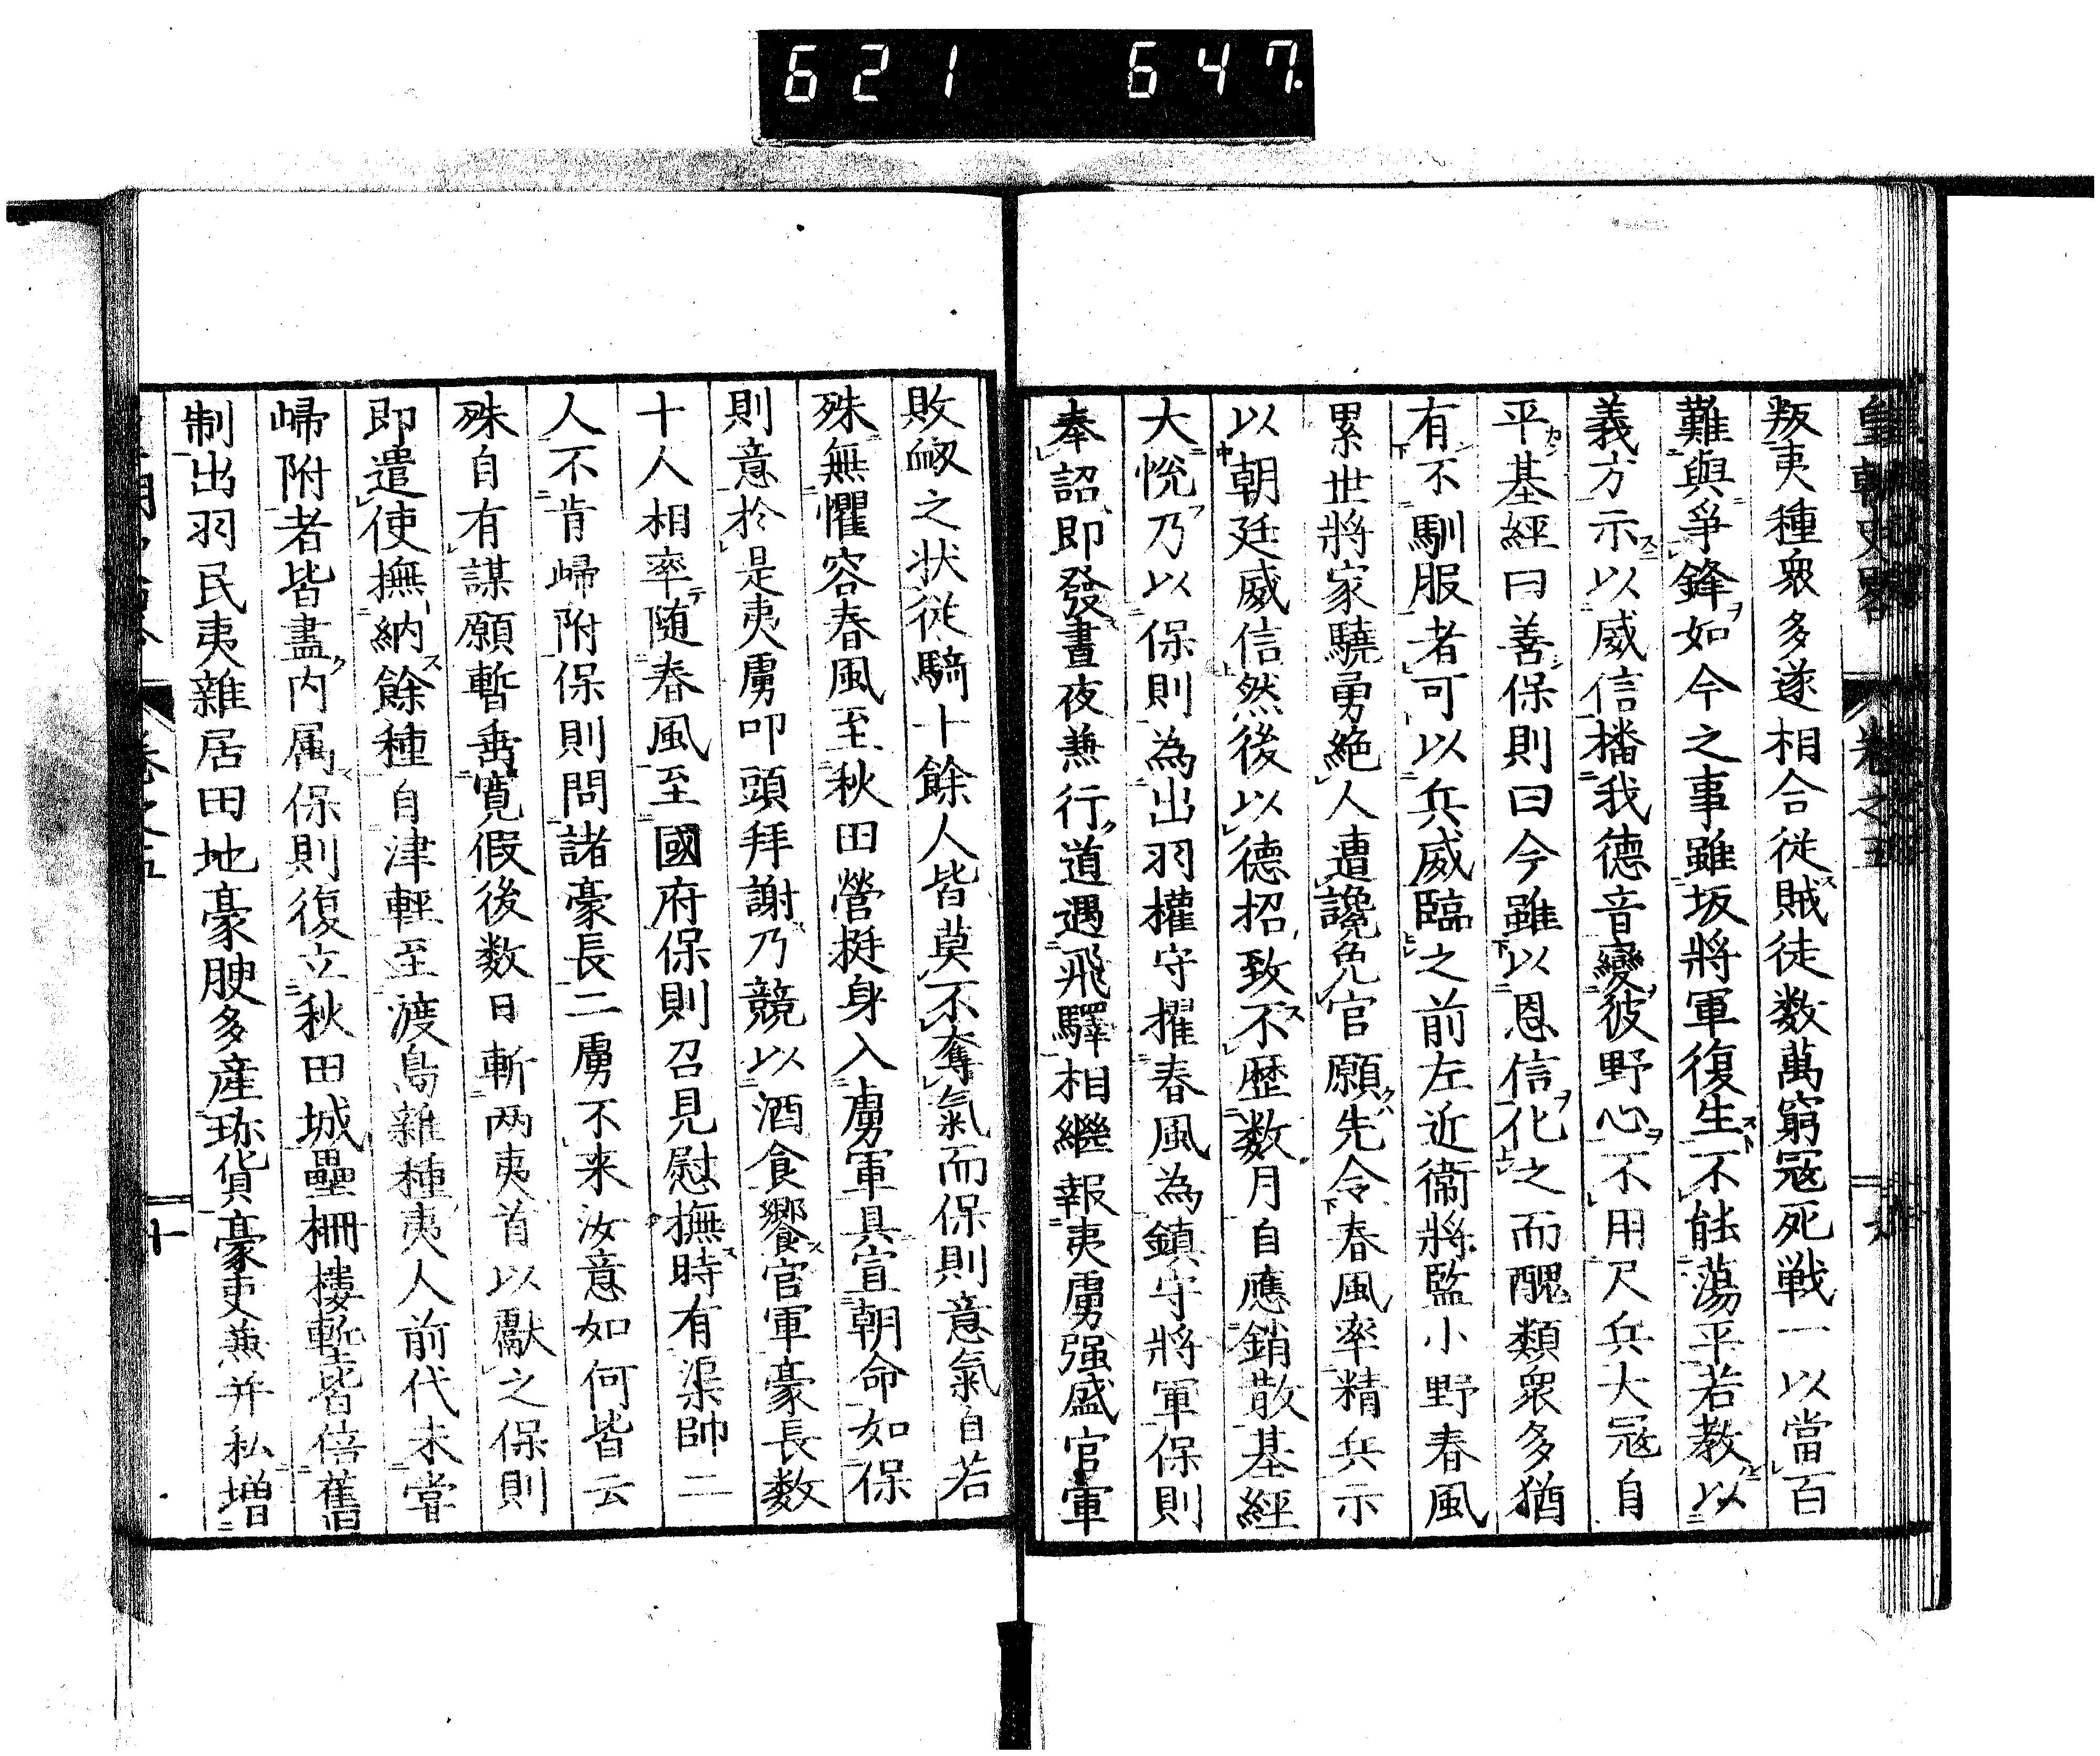 621 647.
皇朝史畧 卷之五
叛夷種衆多遂相合従賊徒数萬窮寇死戦一以當百
難與爭鋒如今之事雖坂將軍復生不能蕩平若教以
義方示以威信播我德音變彼野心不用尺兵大寇自
平基經曰善保則曰今雖以恩信化之而醜類衆多猶
有不馴服者可以兵威臨之前左近衞將監小野春風
累世將家驍勇絶人遭讒免官願先令春風率精兵示
以朝廷威信然後以德招致不歴数月自應銷散基經
大悅乃以保則為出羽權守擢春風為鎮守將軍保則
奉詔即發晝夜兼行道遇飛驛相繼報夷虜强盛官軍
敗衂之状従騎十餘人皆莫不奪氣而保則意氣自若
殊無懼容春風至秋田營挺身入虜軍具宣朝命如保
則意於是夷虜叩頭拜謝乃競以酒食饗官軍豪長数
十人相率随春風至國府保則召見慰撫時有渠帥二
人不肯歸附保則問諸豪長二虜不来汝意如何皆云
殊自有謀願暫垂寛假後数日斬两夷首以獻之保則
即遣使撫納餘種自津輕至渡島雜種夷人前代未甞
歸附者皆盡内属保則復立秋田城壘柵樓塹皆倍舊
制出羽民夷雜居田地豪腴多産珎貨豪吏兼并私増
卷之五 十